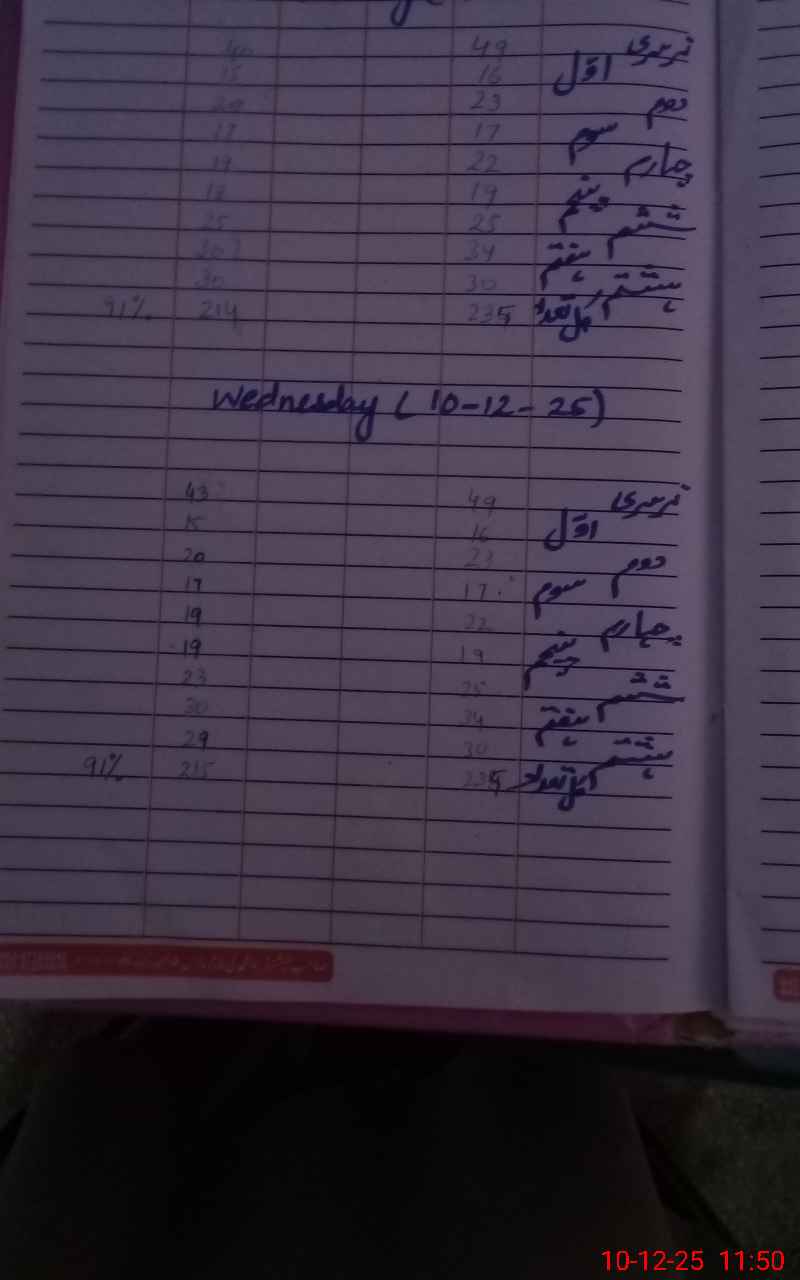 نرسری 49 40
اوّل 16 15
دوم 23 20
سوم 17 17
چہارم 22 19
پنجم 19 18
ششم 25 25
ہفتم 34 30
ہشتم 30 30
235 214 91%
Wednesday (10-12-25)
نرسری 49 43
اوّل 16 15
دوم 23 20
سوم 17 17
چہارم 22 19
پنجم 19 19
ششم 25 23
ہفتم 34 30
ہشتم 30 29
235 215 91%
10-12-25 11:50